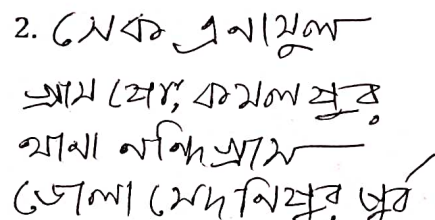 2. সেক এনামুল
গ্রাম পোঃ কমলপুর
থানা নন্দিগ্রাম
জেলা মেদনিপুর পুর্ব